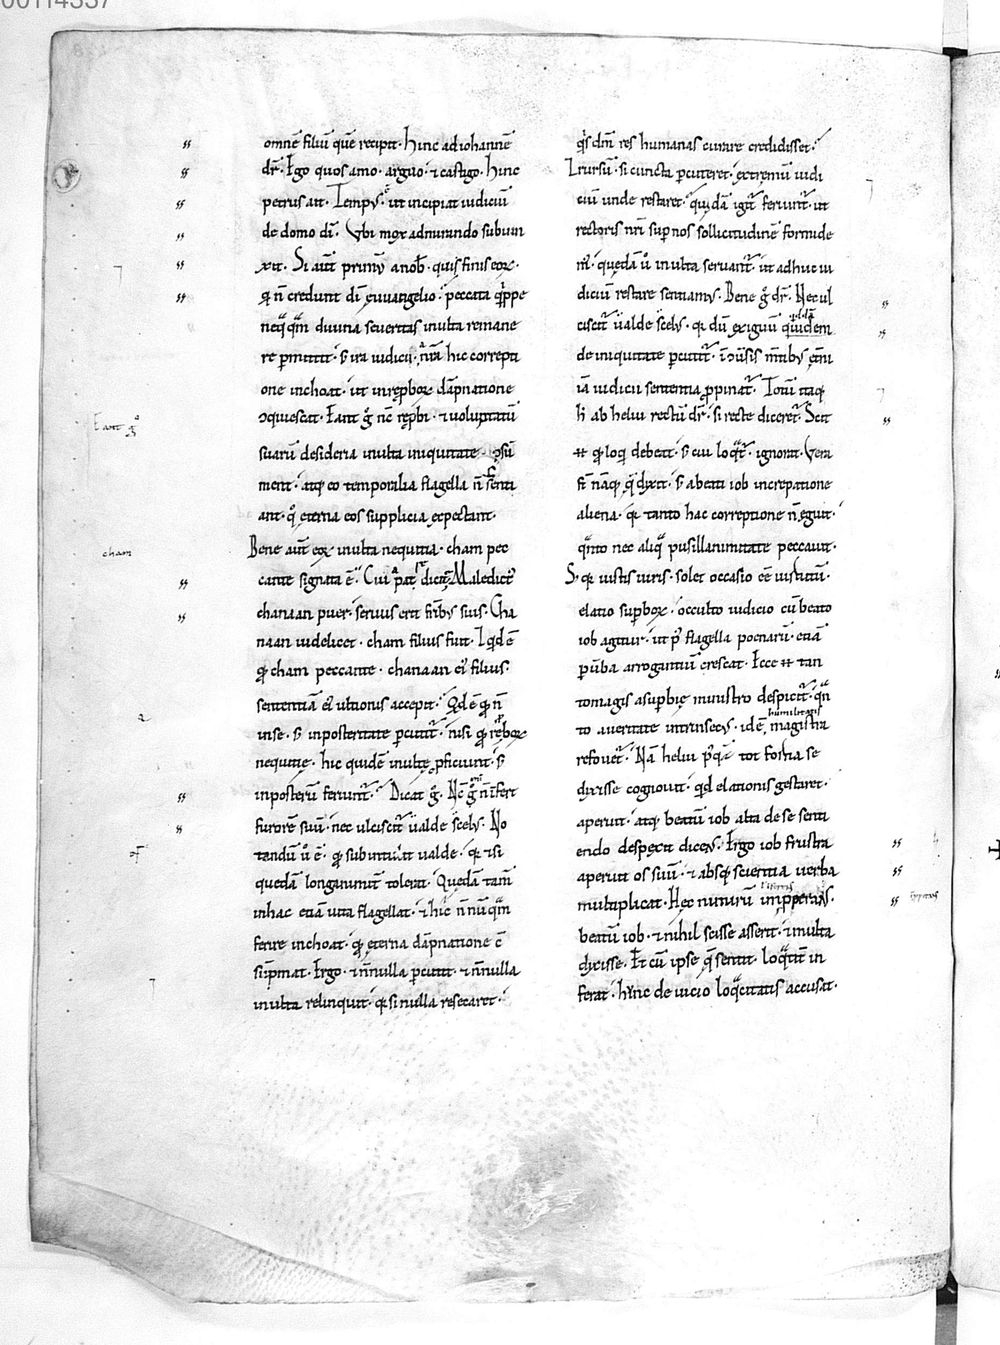 00114337
omnē filiū quē recipit· hinc ad iohannē
dr̄· Ego quos amo· arguo· ⁊ castigo· hinc
petrus ait· Tempꝰ ē ut incipiat iudiciū
de domo dī· Ubi mox admirando subiun
xit· Si aut̄ primū a nob̄· quis finis eoꝝ·
q̇ n̄ credunt dī euuangelio· peccata q̇ppe
neq̄q̄m diuina seueritas inulta remane
re ꝑmittit· s; ira iudicii· nr̄a hic correpti
one inchoat· ut in reꝑboꝝ dāpnatione
ꝯquiescat· Eant ḡ nc̄ reꝑbi· ⁊ uoluptatū
suarū desideria inulta iniquitate ꝯsū
ment· atq; eo temporalia flagella n̄ senti
ant· qͦ eterna eos supplicia expectant·
Bene aut̄ ex inulta nequitia· cham pec
cante signata ē· Cui a patre dicit̄· Maledictꝰ
chanaan puer· seruus erit fr̄ibꝰ suis· Cha
naan uidelicet· cham filius fuit· Et q̇d ē
q̇ cham peccante· chanaan eiꝰ filius·
sententiā eiꝰ ultionis accepit· Q̇d ē q̇ n̄
in se· s; in posteritate ꝑcutit̄· nisi q̇ reꝑboꝝ
nequitie· hic quidē inulte ꝓficiunt· s;
in posterū feriunt̄· Dicat ḡ· Nc̄ ḡ n̄ infert
furorē suū· nec ulciscit̄ ualde scelꝰ· No
tandū ū ē· q̇ subintulit ualde· q̇ etsi
quedā longanimit̄ tolerat· Quedā tam̄
in hac etiā uita flagellat· ⁊ hic n̄nūq̄m
ferire inchoat· q̇ eterna dāpnatione c̄
sūmat· Ergo· ⁊ n̄nulla ꝑcutit· ⁊ n̄nulla
inulta relinquit· q̇ si nulla resecaret·
Eant ḡ
cham
q̇s dm̄ res humanas curare credidisset·
Et rursū· si cuncta ꝑcuteret· extremū iudi
ciū unde restaret· quędā igit̄ feriunt̄· ut
rectoris nr̄i sup nos sollicitudinē formide
m̄· quedā ū inulta seruant̄· ut adhuc iu
diciū restare sentiamꝰ· Bene ḡ dr̄· Nec ul
ciscit̄ ualde scelꝰ· q̇ dū exiguū quidem
de iniquitate ꝑcutit̄· inūsis m̄tibꝰ etn̄i
iā iudicii sententia ꝓpinat̄· Totū itaq;
h̄ ab heliu rectū dr̄· si recte diceret̄· Scit
enim q̇ loq̇ debeat· s; cui loq̄t̄· ignorat· Uera
st̄ nāq; q̄ dixit· s; a beati iob increpatione
aliena· q̇ tanto hac correptione n̄ eguit·
q̄nto nec aliq̄ pusillanimitate peccauit·
S; q̇ iustis uiris· solet occasio ēē uirtutū·
elatio supboꝝ· occulto iudicio cū beato
iob agitur· ut p̄ flagella poenarū· etiā
ꝑ uba arrogantiū crescat· Ecce enim tan
to magis a supbie ministro despicit̄· q̄n
to a ueritate intrinsecꝰ· idē humilitatis magistra
refouet̄· Nā heliu p̄q̄ tot fortia se
dixisse cognouit· q̇d elationis gestaret·
aperuit· atq; beatū iob alta de se senti
endo despexit dicēs· Ergo iob frustra
aperuit os suū· ⁊ absq; scientia uerba
multiplicat· Hec nimirū
beatū iob· ⁊ nihil scisse asserit· ⁊ multa
dixisse· Et cū ipse q̄ sentit· loq̄cit̄ in
ferat· hunc de uicio loq̄citatis accusat·